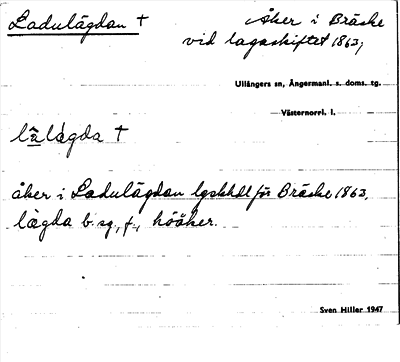 Ladulägdan † Åker i Bräcke
vid lagaskiftet 1863,
Ullångers sn, Ångermanl. s. doms. tg.
Västernorrl. l.
lägda †
åker i Ladulägdan lgskhdl för Bräcke 1863.
lägda b. sg., f., höåker.
Sven Hiller 1947